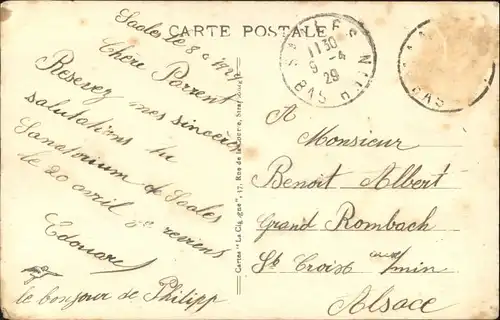 CARTE POSTALE
Saales le 8 1929
Chère Parrent
Resevez mes sincères
salutations du
Sanatorium de Saales
le 20 avril je reviens
Edouard
le bonjour de Philipp
Cartes "La Cigogne", 17, Rue de la Course, Strasbourg
SAALES
1130
9 -4
29
BAS RHIN
BAS
A
Monsieur
Benoit Albert
Grand Rombach
St Croix aux/min
Alsace